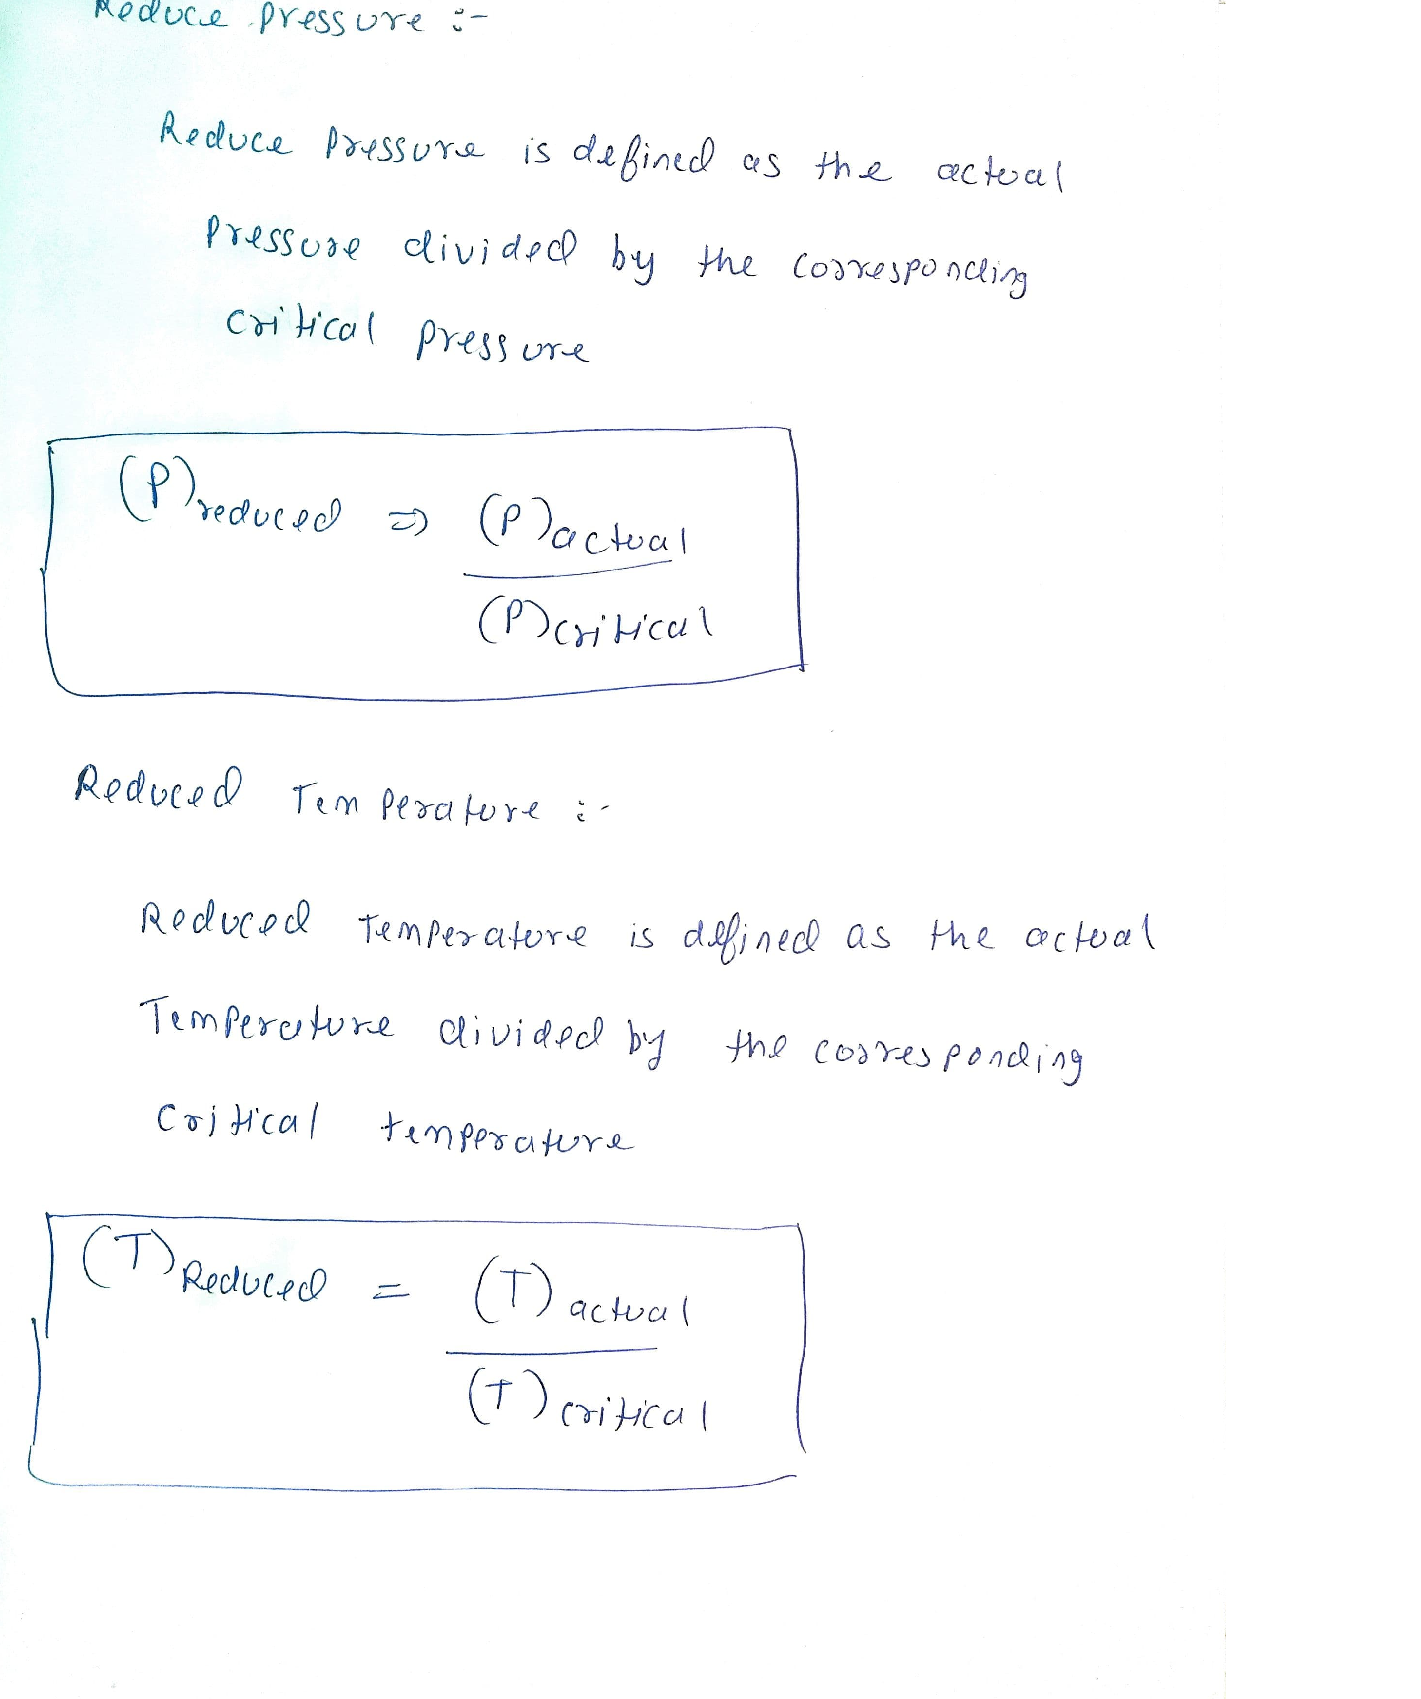 Reduce pressure :-
Reduce Pressure is defined as the actual
Pressure divided by the corresponding
critical pressure
(P)reduced => (P)actual
(P)critical
Reduced Temperature :-
Reduced Temperature is defined as the actual
Temperature divided by the corresponding
Critical temperature
(T)Reduced = (T)actual
(T)critical